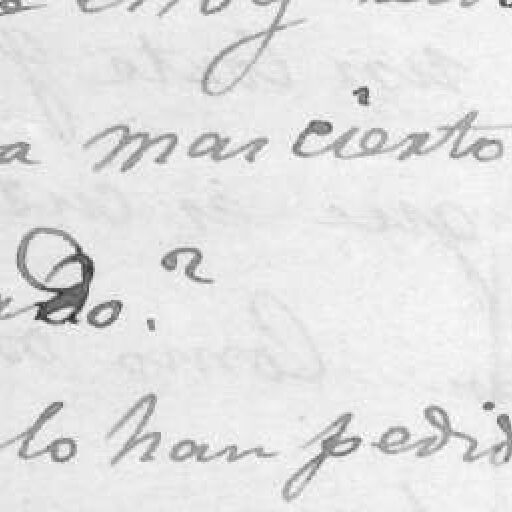 a mas cierto
do.
lo han pedid